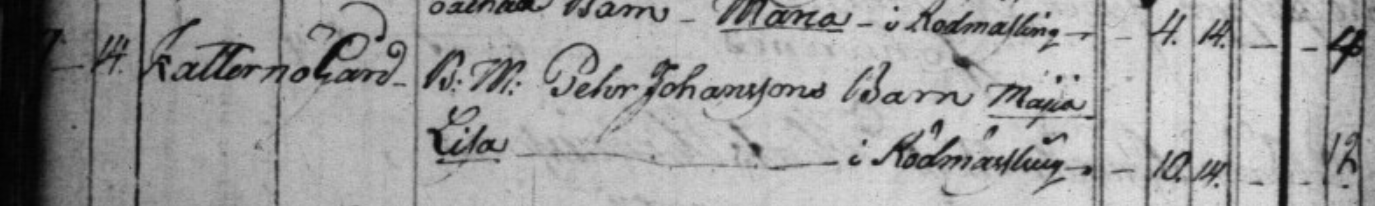 Barn - Maria - i Rödmässling - - 4. 14. - - 4
7. - 14. Katternö Gård - B: M: Pehr Johanssons Barn Maija
Lisa - i Rödmässling - - 10. 14. - - 12